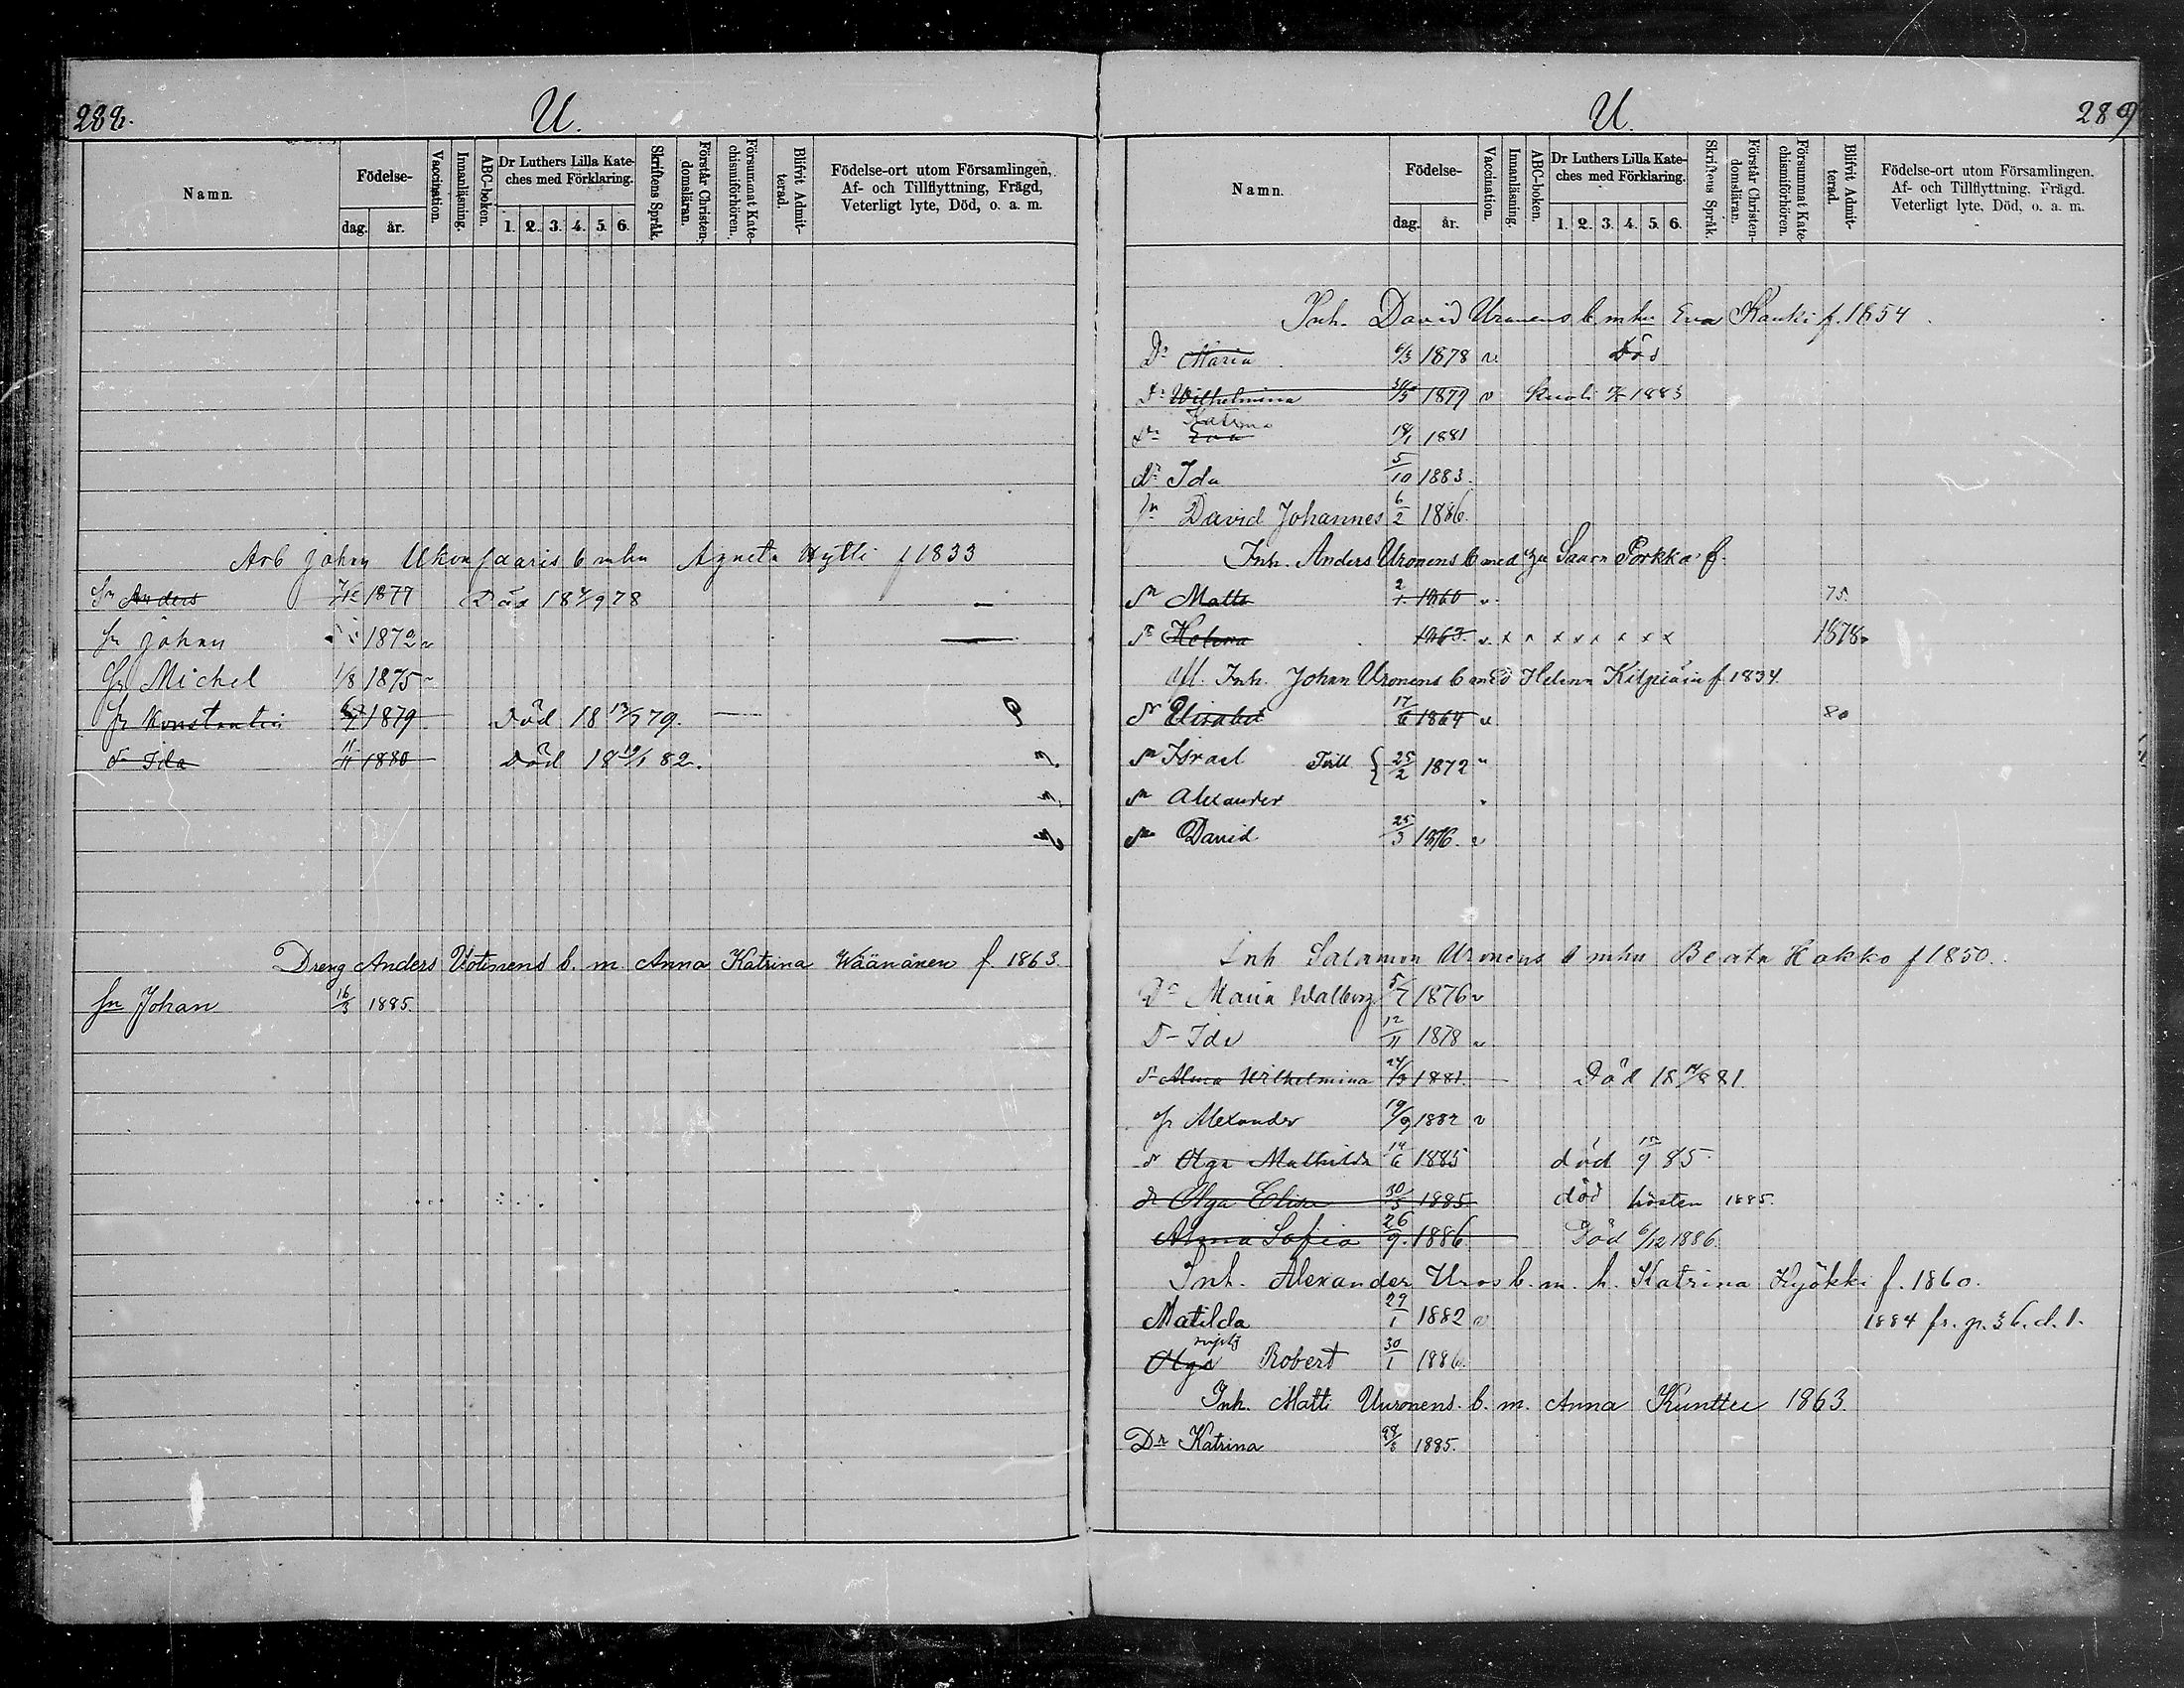 288.
U.
Namn.
Födelse-
dag.
år.
Vaccination.
Innanläsning.
ABC-boken.
Dr Luthers Lilla Kate-
ches med Förklaring.
1. 2. 3. 4. 5. 6.
Skriftens Språk.
Förstår Christen-
domsläran.
Försummat Kate-
chismiförhören.
Blifvit Admit-
terad.
Födelse-ort utom Församlingen,
Af- och Tillflyttning, Frägd,
Veterligt lyte, Död, o. a. m.
Arb Johan Ukonsaaris b mhu Agneta Hytti f 1833
Sn Anders 1877 Död 18 78
Sn Johan 1872 v
Sn Michel 1/8 1875
Sn Konstantin 1879 Död 18 13/7 79.
Dr Ida 11/11 1880 Död 18 19/1 82.
Dreng Anders Uotinens b. m Anna Katrina Wäänänen f. 1863
Sn Johan 16/3 1885.
U.
289
Namn.
Födelse-
dag.
år.
Vaccination.
Innanläsning.
ABC-boken.
Dr Luthers Lilla Kate-
ches med Förklaring.
1. 2. 3. 4. 5. 6.
Skriftens Språk.
Förstår Christen-
domsläran.
Försummat Kate-
chismiförhören.
Blifvit Admit-
terad.
Födelse-ort utom Församlingen.
Af- och Tillflyttning. Frägd.
Veterligt lyte, Död, o. a. m.
Inh. David Uronens b mhu Eva Kauki f. 1854
Dr Maria 6/3 1878 v Död
Dr Wilhelmina 1879 v Kuoli 1883
Dr Eva Katrina 18/1 1881
dr Ida 5/10 1883.
Sn David Johannes 6/2 1886.
Inh. Anders Uronens b med Saara Porkka f.
Sn Matts 2/1 1860 v 75.
Dr Helena 1863. v x x x x x x x x 1878.
Afl. Inh. Johan Uronens b med Helena Kilpiäin f 1834.
Dr Elisabet 17/6 1864 v 80
Sn Israel Tvill { 25/2 1872 "
Sn Alexander
Sn David 25/3 1876. v
Inh Salamon Uronens b mhu Beata Hakko f 1850.
Dr Maria Walborg 5/7 1876 v
D- Ida 12/11 1878 v
dr Alma Wilhelmina 24/3 1881. Död 18 81.
Sn Alexander 19/9 1882 v
dr Olga Mathilda 14/6 1885 död 85
dr Olga Elisa 1885 död hösten 1885.
Alma Sofia 26/9. 1886 Död 6/12 1886.
Inh. Alexander Uros b. m. h. Katrina Kyökki f. 1860.
Matilda 29/1 1882 v 1884 fr. p. 36. d. 1.
Olga Robert 30/1 1886.
Inh. Matti Uuronens b. m. Anna Kunttu 1863.
Dr Katrina 1885.